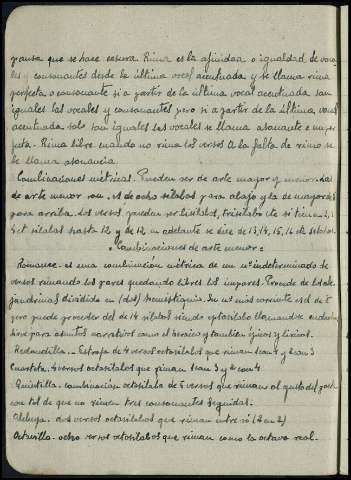 pausa que se hace cesura. Rima es la afinidaz o igualdad de voca
les y consonantes desde la última vocal acentuada y se llama rima
perfecta o consonante si a partir de la última vocal acentuada son
iguales las vocales y consonantes pero si a partir de la última vocal
acentuada solo son iguales las vocales se llama asonante e imper
feta. Rima libre cuando no rima los versos a la falta de rima se
le llama asonancia
Combinaciones métricas. Pueden ser de arte mayor y menor. Las
de arte menor son de ocho sílabas para abajo y la de mayor
para arriba. Los versos pueden ser bisílabos, trisílabo
sílabas hasta 12 y de 12 en adelante se dice de 13, 14, 15, 16 de sílabas.
Combinaciones de arte menor:
Romance. es una combinación métrica de un nº indeterminado de
versos rimando los pares quedando libres los impares. Procede del ale
jandrino dividido en (dos) hemistiquios. Su más corriente es de 8
pero puede proceder del de 14 sílabas siendo eptasílabo llamandose
sirve para asuntos narrativos como el heroico y tambien épicos y líricos.
Redondilla. Estrofa de 4 versos octosílabos que riman 1 con 4 y 2 con 3
Cuarteta. 4 versos octosílabos que riman 1 con 3 y 2 con 4
Quintilla. combinación octosílaba de 5 versos que riman al gusto del poeta
con tal de que no rimen tres consonantes seguidas.
Aleluya. dos versos octosílabos que riman entre si (2 en 2)
Octavilla. ocho versos octosílabos que riman como la octava real.